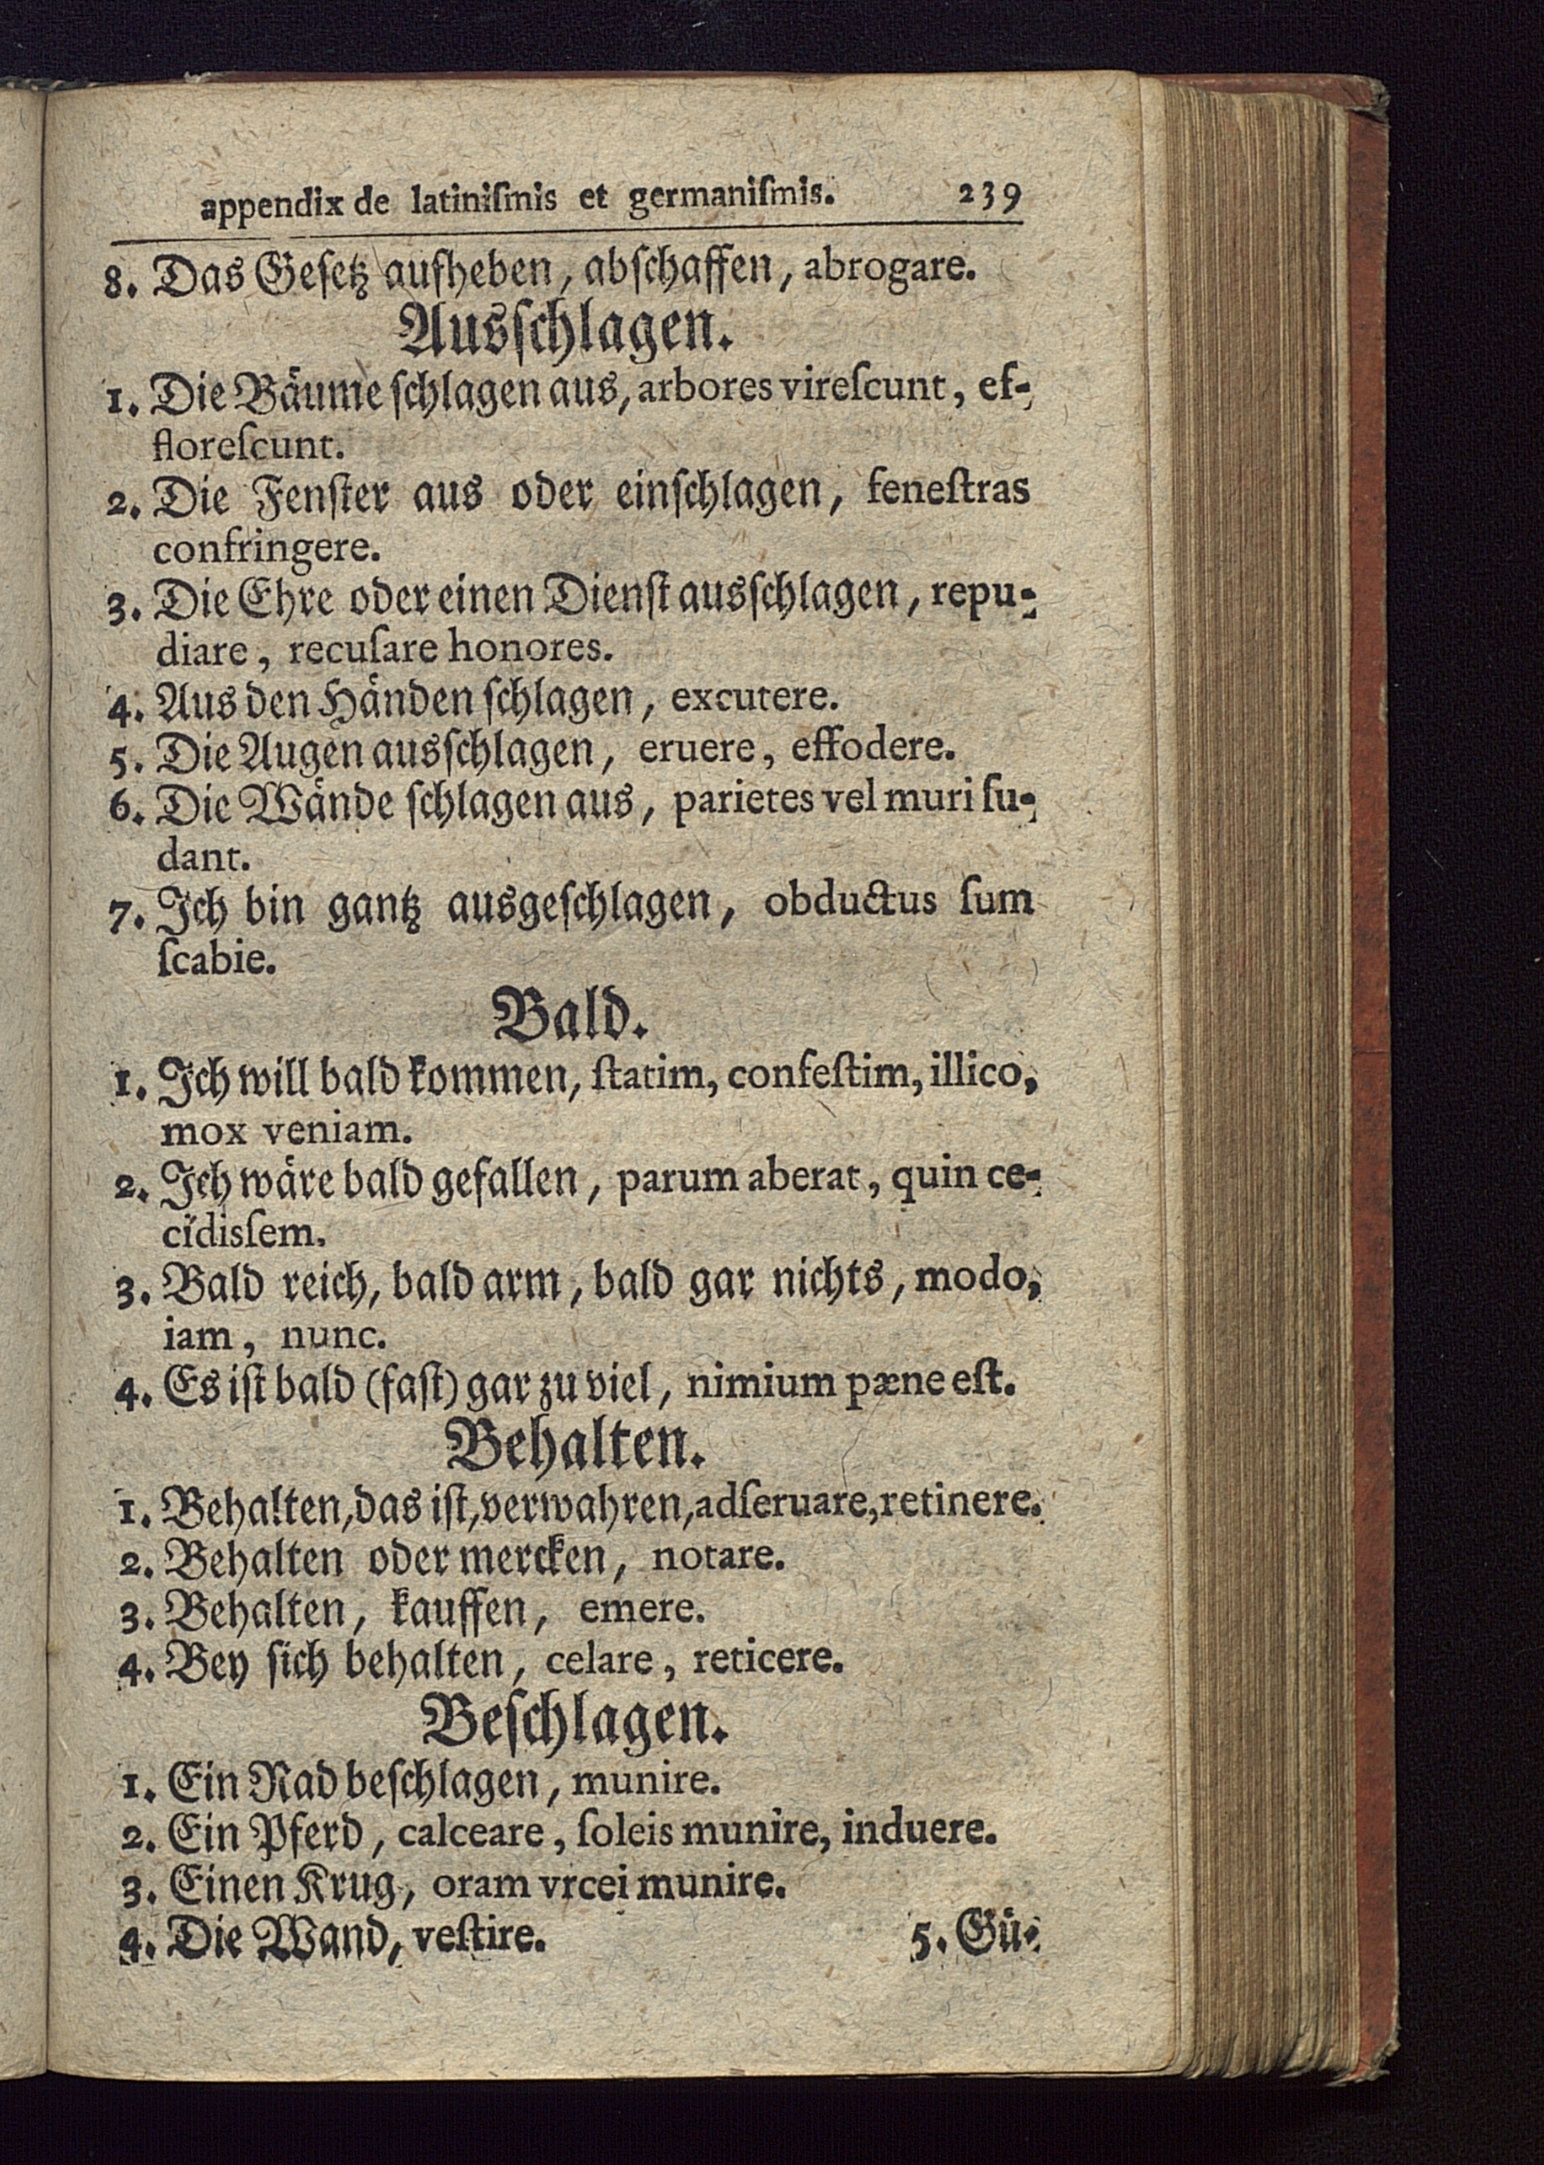 appendix de latiniſmis et germaniſmis. 239
8. Das Geſetz aufheben, abſchaffen, abrogare.
Ausſchlagen.
1. Die Bäume ſchlagen aus, arbores vireſcunt, ef-
floreſcunt.
2. Die Fenſter aus oder einſchlagen, feneſtras
confringere.
3. Die Ehre oder einen Dienſt ausſchlagen, repu-
diare, recuſare honores.
4. Aus den Händen ſchlagen, excutere.
5. Die Augen ausſchlagen, eruere, effodere.
6. Die Wände ſchlagen aus, parietes vel muri ſu-
dant.
7. Ich bin gantz ausgeſchlagen, obductus ſum
ſcabie.
Bald.
1. Ich will bald kommen, ſtatim, confeſtim, illico,
mox veniam.
2. Ich wäre bald gefallen, parum aberat, quin ce-
cidisſem.
3. Bald reich, bald arm, bald gar nichts, modo,
iam, nunc.
4. Es iſt bald (faſt) gar zu viel, nimium pæne eſt.
Behalten.
1. Behalten, das iſt, verwahren, adſeruare, retinere.
2. Behalten oder mercken, notare.
3. Behalten, kauffen, emere.
4. Bey ſich behalten, celare, reticere.
Beſchlagen.
1. Ein Rad beſchlagen, munire.
2. Ein Pferd, calceare, ſoleis munire, induere.
3. Einen Krug, oram vrcei munire.
4. Die Wand, veſtire. 5. Gü-